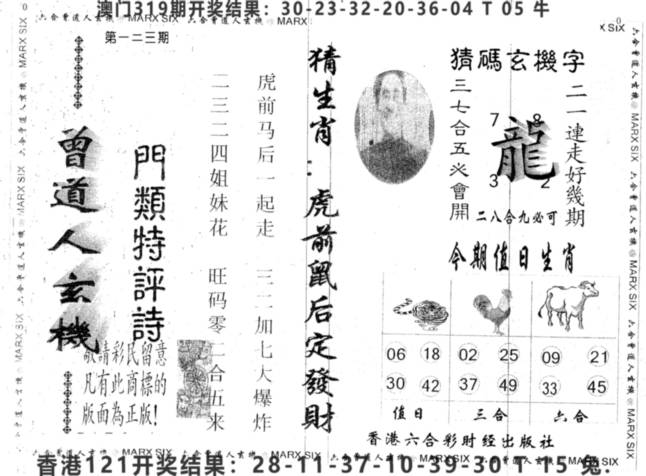 澳门319期开奖结果：30-23-32-20-36-04 T 05 牛
六合曾道人玄機 MARX SIX 六合曾道人玄機 MARX SIX 六合曾道人玄機 MARX
第一二三期
曾道人玄機
門類特評詩
敬請彩民留意
凡有此商標的
版面為正版！
虎前马后一起走 三二加七大爆炸
二三二二四姐妹花 旺码零二合五来
猜生肖：虎前鼠后定發財
猜碼玄機字
二一連走好幾期
三七合五必會開
7 8
龍
3 2
二八合九必可
今期值日生肖
06 18 02 25 09 21
30 42 37 49 33 45
值日 三合 六合
香港六合彩财经出版社
六合曾道人玄機 MARX SIX
香港121开奖结果：28-11-37-10-39-30